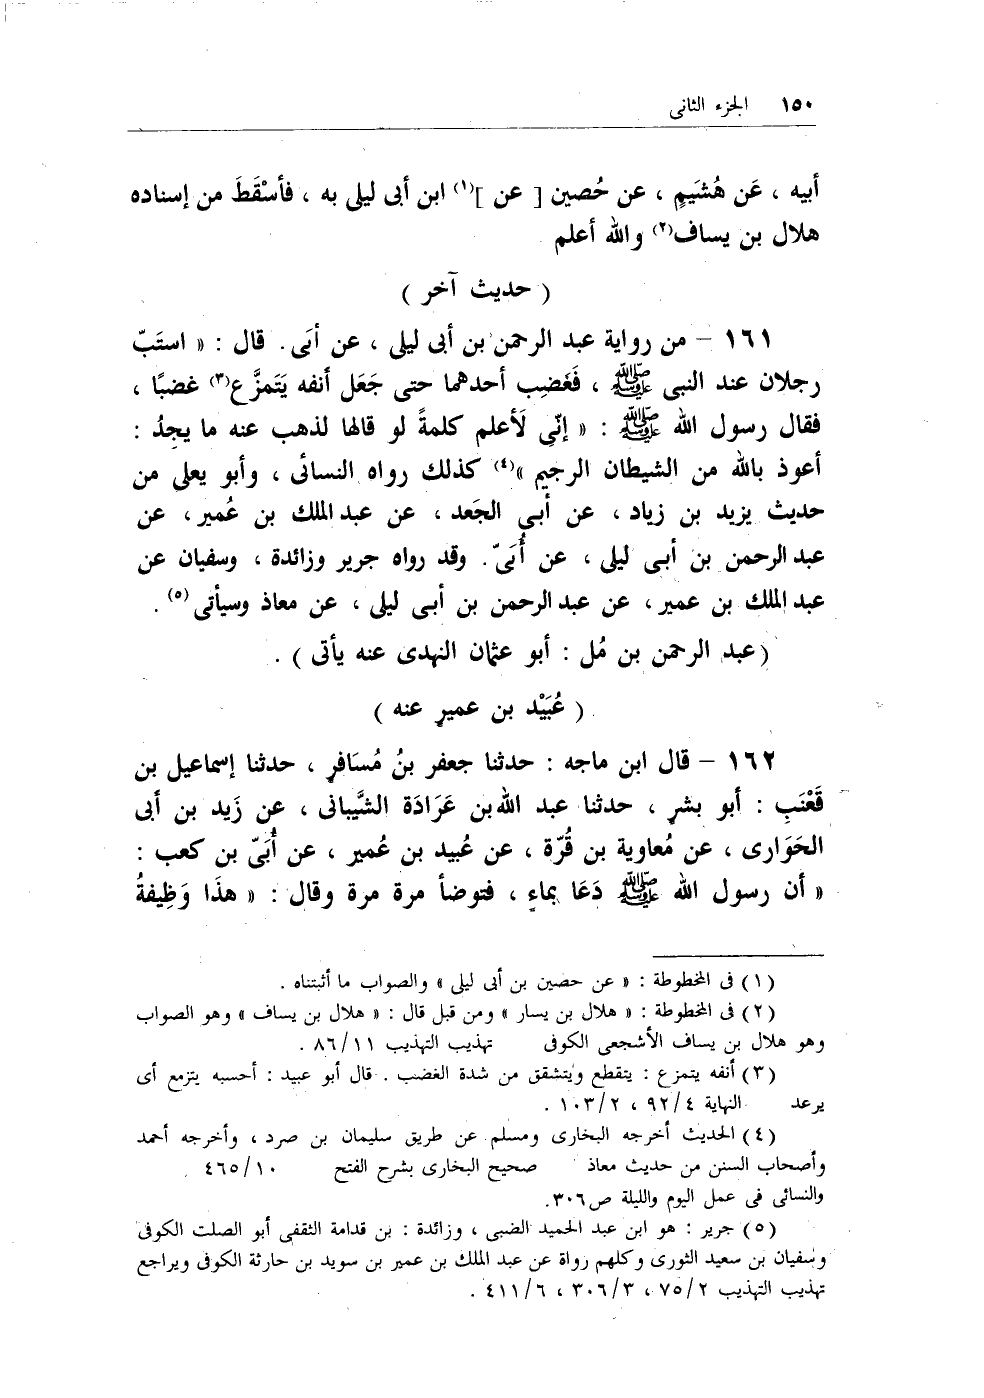 ١٥٠ الجزء الثانى
أبيه ، عَن هُشَيمٍ ، عن حُصين [ عن ](١) ابن أبى ليلى به ، فأسْقَطَ من إسناده
هلال بن يساف(٢) والله أعلم
( حديث آخر )
١٦١ – من رواية عبد الرحمن بن أبى ليلى ، عن أبَى. قال : « استَبّ
رجلان عند النبى ﷺ ، فَغَضِب أحدهما حتى جَعَل أنفه يَتَمزَّع(٣) غضبًا ،
فقال رسول الله ﷺ : « إنّى لَأعلم كلمةً لو قالها لذهب عنه ما يجدُ :
أعوذ بالله من الشيطان الرجيم »(٤) كذلك رواه النسائى ، وأبو يعلى من
حديث يزيد بن زياد ، عن أبي الجَعد ، عن عبد الملك بن عُمير ، عن
عبد الرحمن بن أبى ليلى ، عن أُبَىّ. وقد رواه جرير وزائدة ، وسفيان عن
عبد الملك بن عمير ، عن عبد الرحمن بن أبى ليلى ، عن معاذ وسيأتى(٥) .
( عبد الرحمن بن مُل : أبو عثمان النهدى عنه يأتى ) .
( عُبَيْد بن عميرٍ عنه )
١٦٢ – قال ابن ماجه : حدثنا جعفر بنُ مُسَافرٍ ، حدثنا إسماعيل بن
قَعْنَبِ : أبو بشرٍ ، حدثنا عبد الله بن عَرَادَة الشَّيبانى ، عن زَيد بن أبى
الحَوَارى ، عن مُعاوية بن قُرّة ، عن عُبيد بن عُمير ، عن أُبَىّ بن كعب :
« أن رسول الله ﷺ دَعَا بماءٍ ، فتوضأ مرة مرة وقال : « هذَا وَظِيفةُ
(١) فى المخطوطة : « عن حصين بن أبى ليلى » والصواب ما أثبتناه .
(٢) فى المخطوطة : « هلال بن يسار » ومن قبل قال : « هلال بن يساف » وهو الصواب
وهو هلال بن يساف الأشجعى الكوفى تهذيب التهذيب ٨٦/١١ .
(٣) أنفه يتمزع : يتقطع ويتشقق من شدة الغضب . قال أبو عبيد : أحسبه يتزمع أى
يرعد النهاية ٩٢/٤ ، ١٠٣/٢ .
(٤) الحديث أخرجه البخارى ومسلم عن طريق سليمان بن صرد ، وأخرجه أحمد
وأصحاب السنن من حديث معاذ صحيح البخارى بشرح الفتح ٤٦٥/١٠
والنسائى فى عمل اليوم والليلة ص٣٠٦.
(٥) جرير : هو ابن عبد الحميد الضبى ، وزائدة : بن قدامة الثقفى أبو الصلت الكوفى
وسفيان بن سعيد الثورى وكلهم رواة عن عبد الملك بن عمير بن سويد بن حارثة الكوفى ويراجع
تهذيب التهذيب ٧٥/٢ ، ٣٠٦/٣ ، ٤١١/٦ .